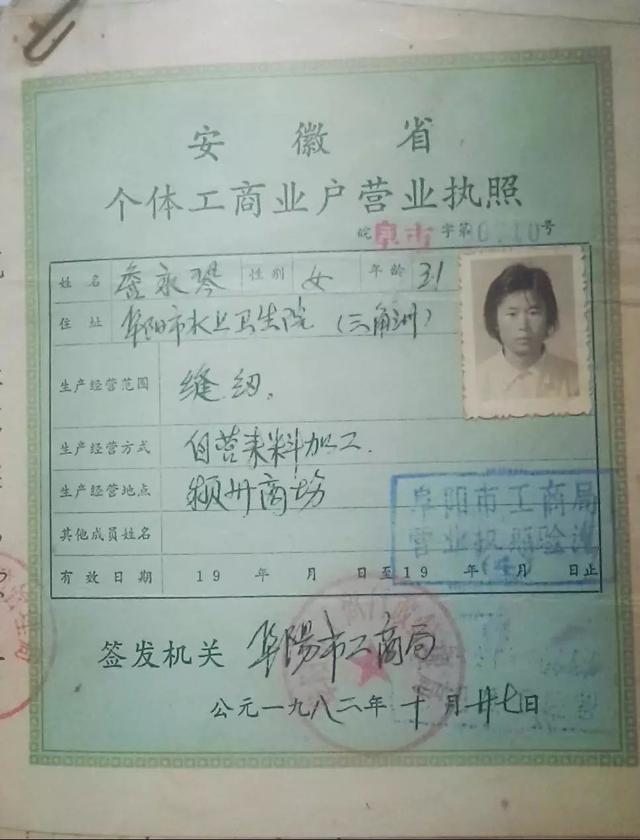 安徽省
个体工商业户营业执照
皖阜市字第0710号
姓名 詹永琴 性别 女 年龄 31
住址 阜阳市水上卫生院（三角洲）
生产经营范围 缝纫.
生产经营方式 自营来料加工.
生产经营地点 颍州商场
其他成员姓名
有效日期 19 年 月 日至19 年 月 日止
阜阳市工商局
营业执照验
签发机关 阜陽市工商局
公元一九八二年十月廿七日